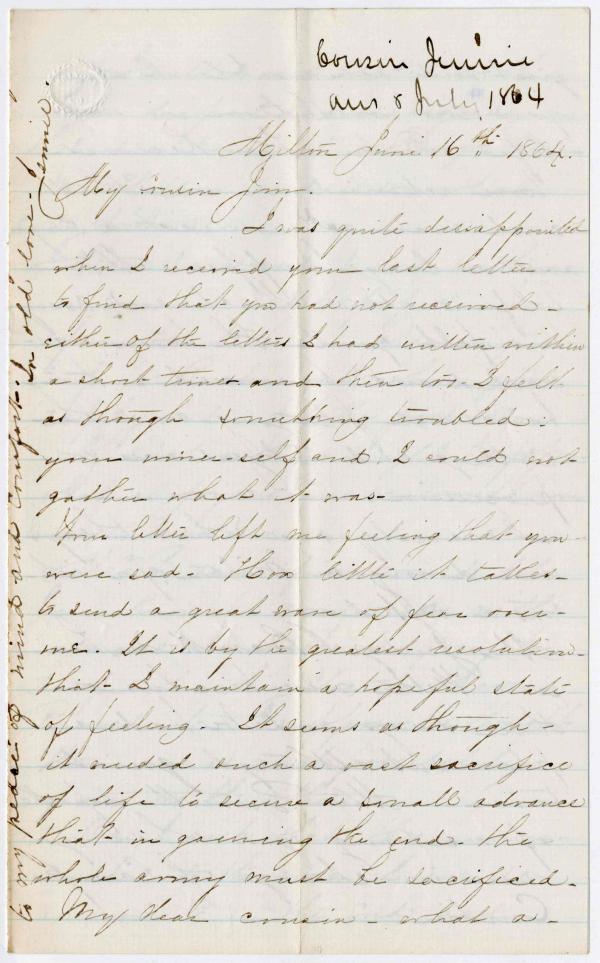 Cousin Jennie
ans 8 July 1864
Milton June 16th 1864.
My Cousin Jim.
I was quite disappointed
when I received your last letter
to find that you had not received -
either of the letters I had written within
a short time and then too - I felt
as though something troubled
your inner-self and I could not
gather what it was -
Your letter left me feeling that you
were sad - How little it takes -
to send a great wave of fear over -
me. It is by the greatest resolution -
that I maintain a hopeful state
of feeling - It seems as though -
it needed such a vast sacrifice
of life to secure a small advance
that in gaining the end - the
whole army must be sacrificed -
My dear cousin - what a -
to my peace of mind and Comfort. In old love - Jennie.